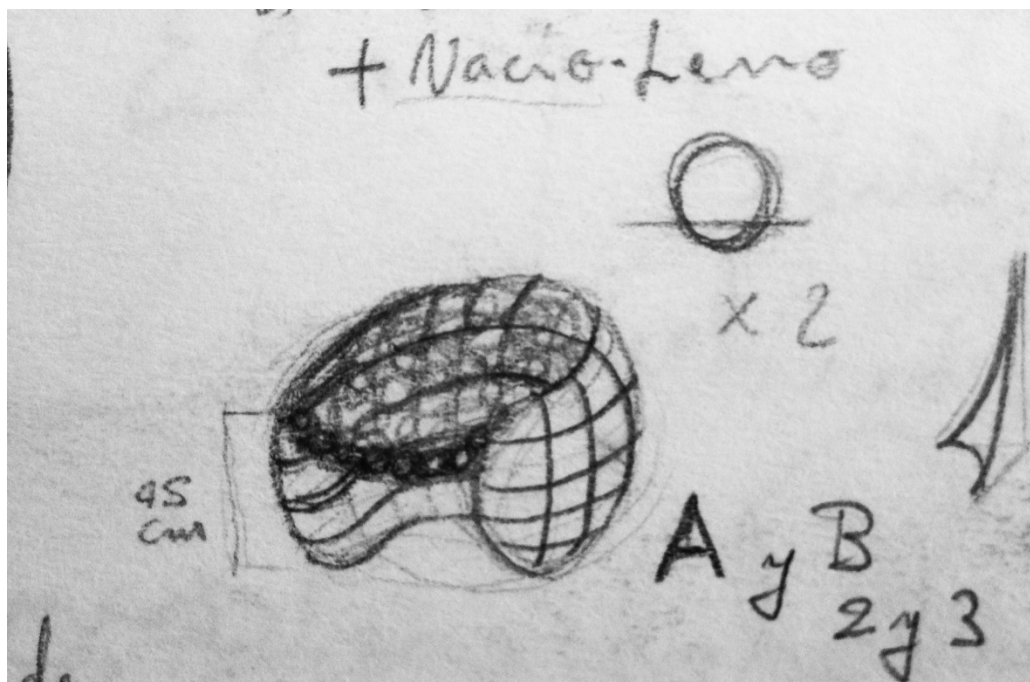 + Nacio-Leno
x 2
45
cm
A y B
2 y 3